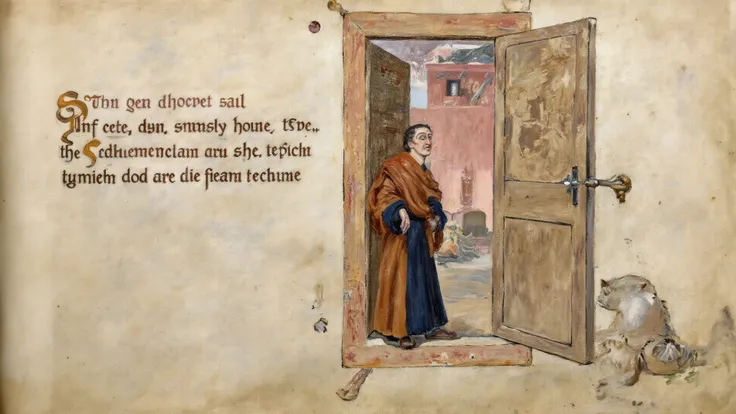 Sthn gen dhocpet sail
Anf cete, dyn. smnsly houne, tsve..
the Scdhuemenclam aru she. tepicht
tymieth dod are die fieam techune